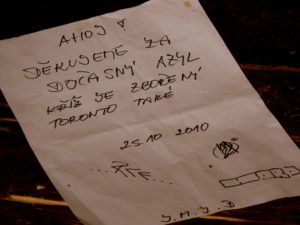 AHOJ !
DĚKUJEME ZA
DOČASNÝ AZYL
KŘÍŽ JE ZBOŘENÝ
TORONTO TAKÉ
25.10 2010